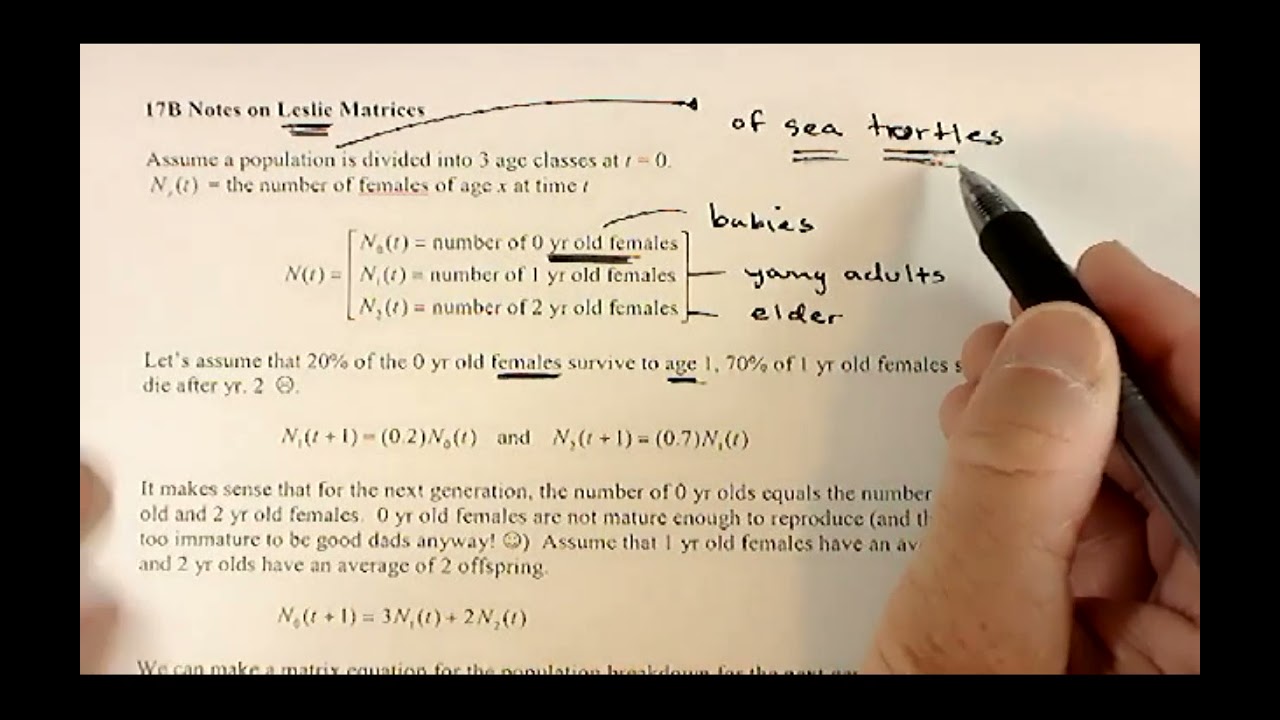 17B Notes on Leslie Matrices
of sea turtles
Assume a population is divided into 3 age classes at t = 0.
Nₓ(t) = the number of females of age x at time t
babies
N₀(t) = number of 0 yr old females
N(t) = N₁(t) = number of 1 yr old females
young adults
N₂(t) = number of 2 yr old females
elder
Let's assume that 20% of the 0 yr old females survive to age 1, 70% of 1 yr old females s
die after yr. 2 ☹.
N₁(t + 1) = (0.2)N₀(t) and N₂(t + 1) = (0.7)N₁(t)
It makes sense that for the next generation, the number of 0 yr olds equals the number
old and 2 yr old females. 0 yr old females are not mature enough to reproduce (and th
too immature to be good dads anyway! ☺) Assume that 1 yr old females have an av
and 2 yr olds have an average of 2 offspring.
N₀(t + 1) = 3N₁(t) + 2N₂(t)
We can make a matrix equation for the population breakdown for the next